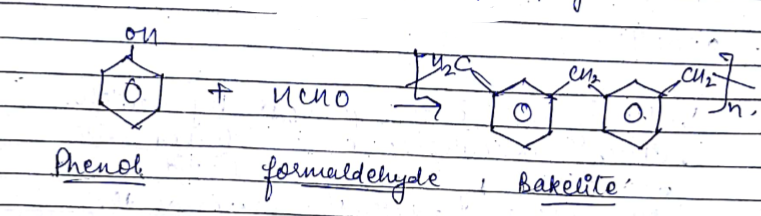 OH
+ HCHO → [ H₂C CH₂ CH₂ ]n.
Phenol formaldehyde , Bakelite